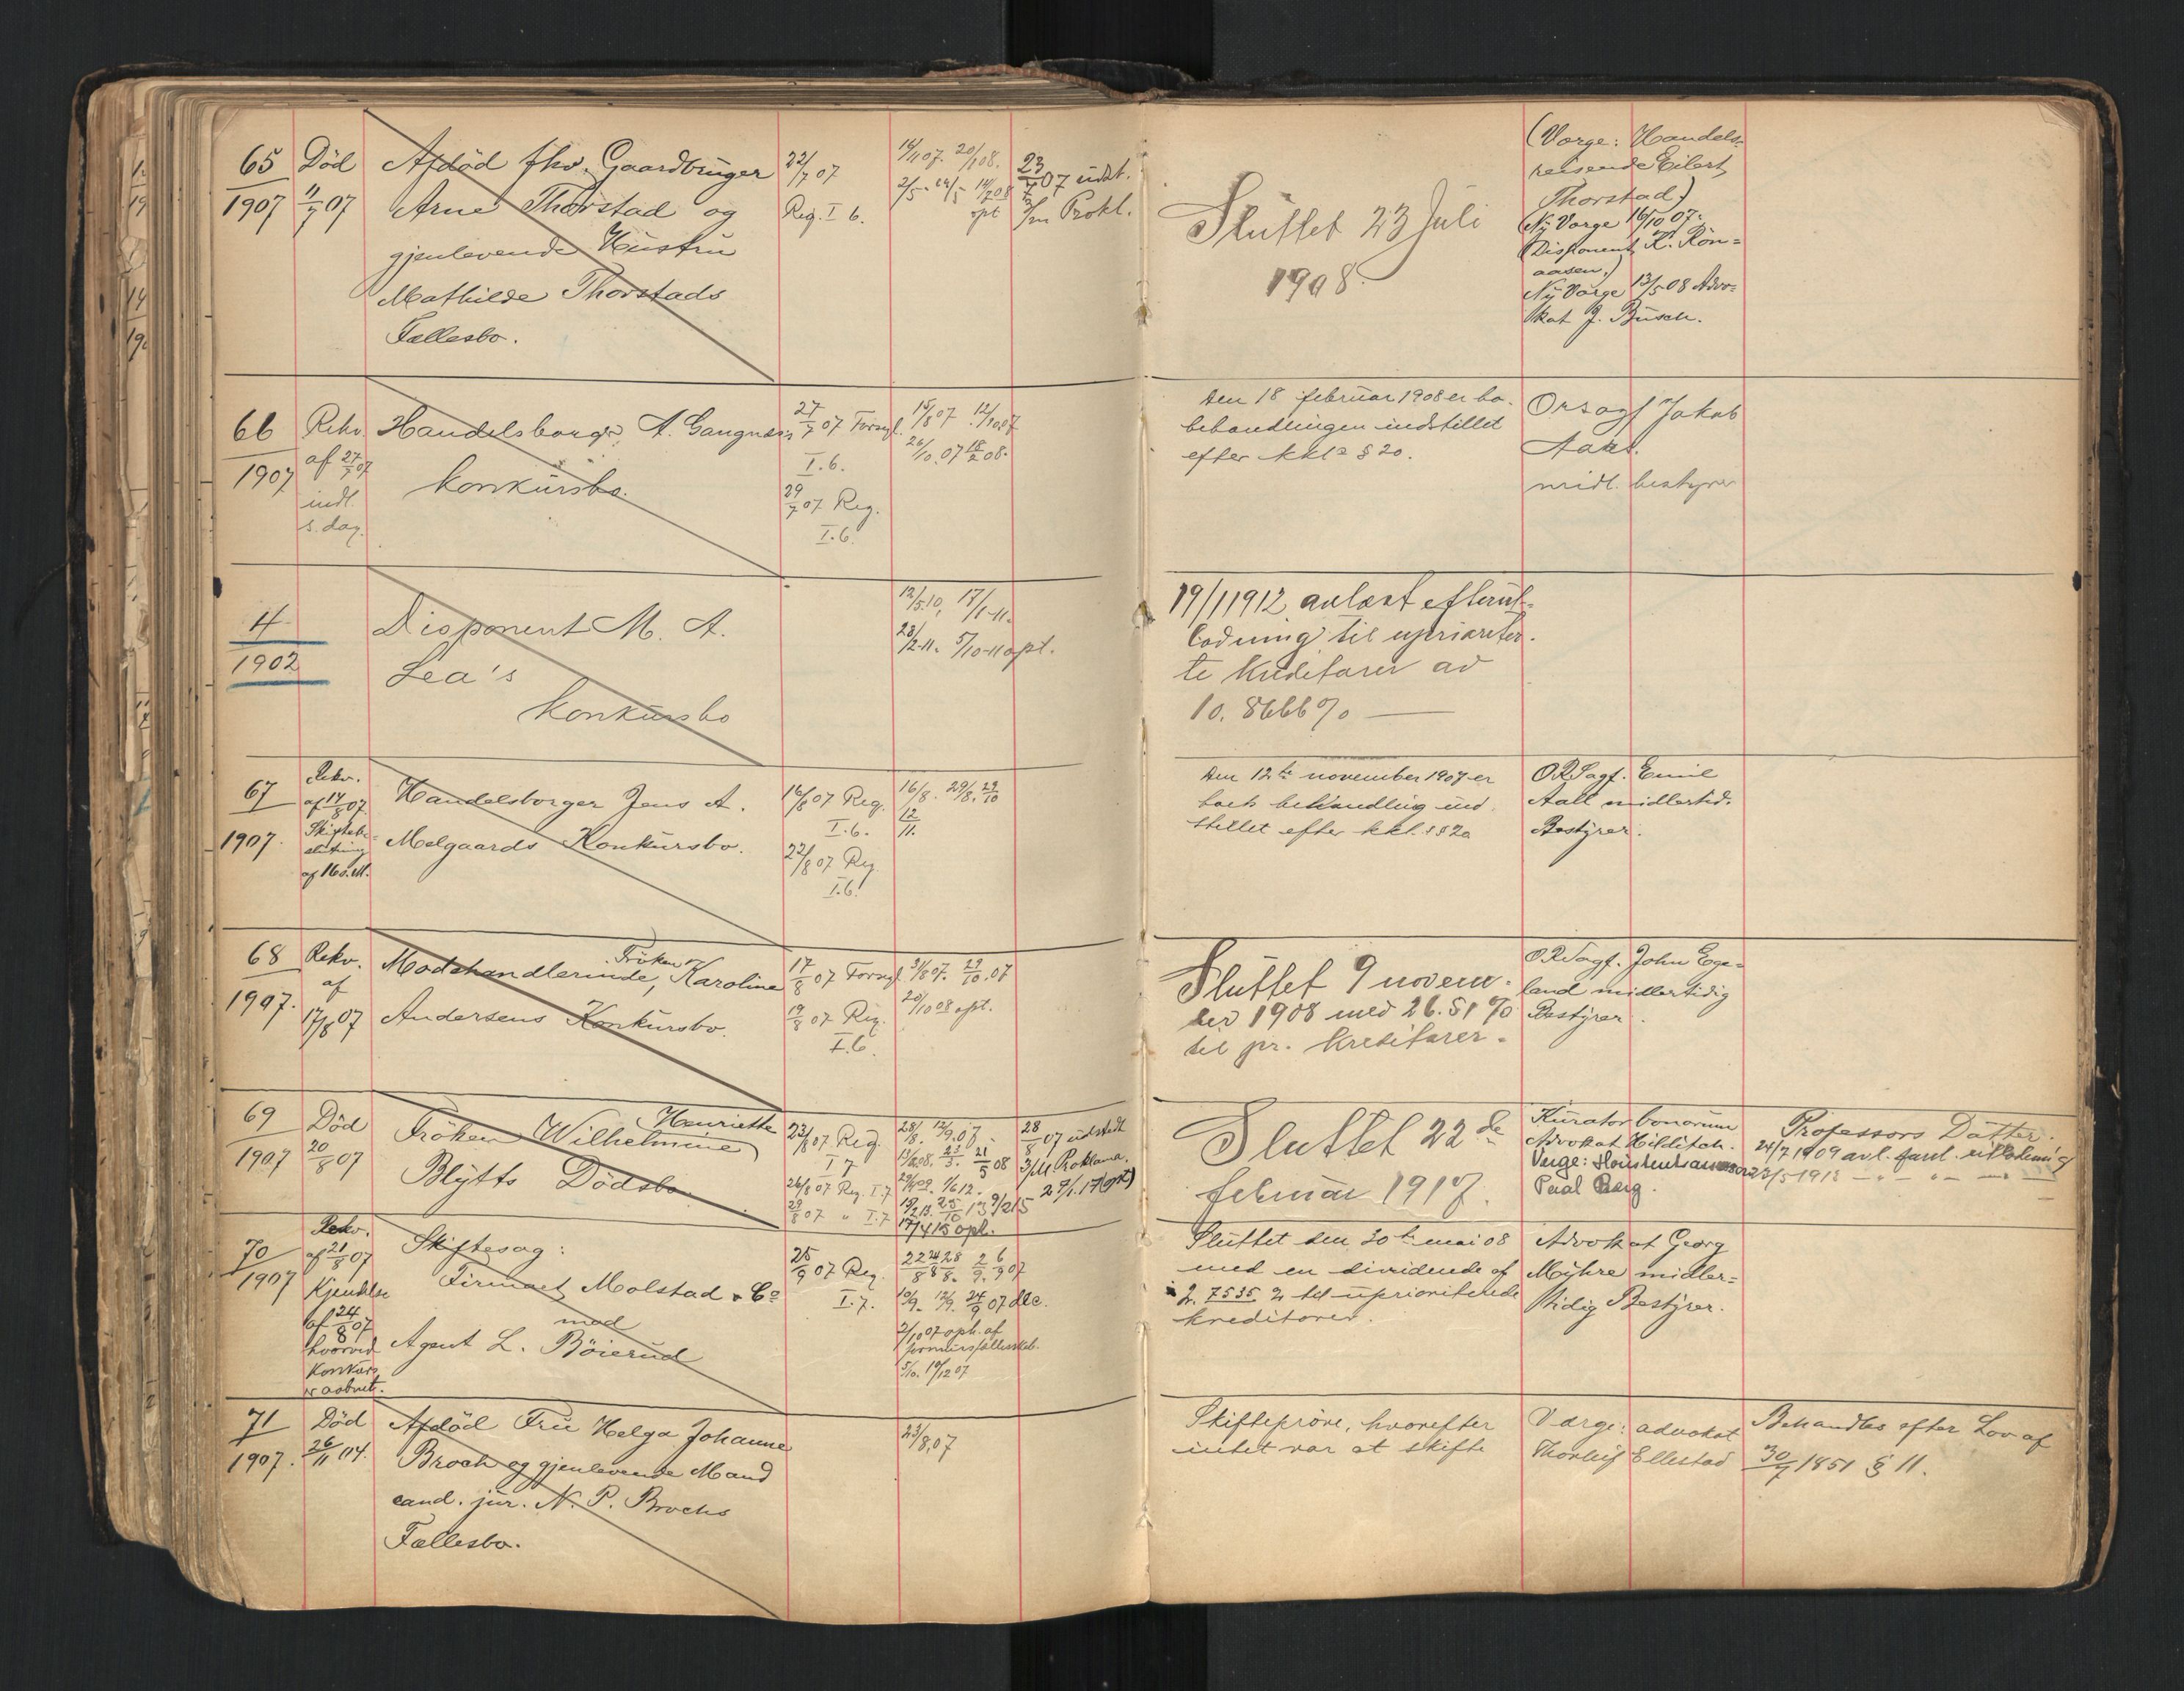 65 Död Afdöd fhv. Gaardbruger 22/7 07 14/11 07. 20/1 08. 23/7 07 udst.
1907 11/7 07 Arne Thorstad og Reg. I 6. 3/m Prokl.
gjenlevende Hustru
Mathilde Thorstads
Fællesbo.
Sluttet 23 Juli
1908.
(Værge: Handels-
reisende Eilert
Thorstad)
(Ny Værge 16/10 07:
Disponent K. Rön-
aasen.)
Ny Værge 13/5 08 Advo-
kat J. Busch.
66 Rekv. Handelsborger A. Gangnæs 27/7 07 Forsegl. 15/8 07 12/10 07
1907 af 27/7 07 konkursbo. I. 6. 26/10. 07 18/2 08.
indl. 29/7 07 Reg.
s. dag. I. 6.
den 18 februar 1908 er bo-
behandlingen indstillet
efter kkl § 20.
Orsagf Jakob
Aars.
midl. bestyrer
4 Disponent M. A. 12/5 10, 17/1-11.
1902 Lea's 23/2-11. 5/10-11 opt.
konkursbo
19/1 1912 anlæst efterut-
lodning til uprioriter-
te kreditorer av
10. 8666 %
67 Rekv. Handelsborger Jens A. 16/8 07 Reg. 16/8. 29/8. 29/10
af 14/8 07. I. 6. 12/11.
1907. Skiftebe- Melgaards Konkursbo. 22/8 07 Reg.
slutning I. 6.
af 16 s. M.
den 12te november 1907 er
boets behandling ind-
stillet efter kkl. § 20
O.R.Sagf. Emil
Aall midlertid.
Bestyrer.
68 Rekv. Fröken
af Modehandlerinde, Karoline 17/8 07 Forsegl. 31/8 07. 29/10. 07
1907. 17/8 07 Andersens Konkursbo. 19/8 07 Reg. 20/10 08 opt.
I. 6.
Sluttet 9 novem-
ber 1908 med 26.51 %
til pr. kreditorer.
O.R.Sagf. John Ege-
land midlertidig
Bestyrer.
69 Död Henriette
Fröken Wilhelmine 23/8 07 Reg. 28/8 07 udstedt
1907 20/8 07 Blytts Dödsbo. I 7 3/M Proklama.
26/8 07 Reg. I. 7 27/1.17 (opt)
29/8 07 " I. 7 17/4 15 opl.
Sluttet 22de
februar 1917.
Kurator bonorum
Advokat Hilditch.
Værge:
Paal Berg.
Professors Datter.
24/7 1909 avl. utlodning
23/5 1913
70 Rekv.
af 21/8 07 Skiftesag:
1907 Kjendelse Firmaet Molstad & Co 25/9 07 Reg. 22/8 24/8 28/8. 2/9. 6/9 07
af 24/8 07 med I. 7. 10/9. 12/9. 24/9 07 dec.
hvorved Agent L. Böierud 2/10 07 oph. af
Konkurs formuesfællesskab.
er aabnet. 5/10. 10/12 07
Sluttet den 30te mai 08
med en dividende af
2. 7535 % til uprioriterede
kreditorer.
Advokat Georg
Myhre midler-
tidig Bestyrer.
71 Död Afdöd Frue Helga Johanne 23/8, 07
1907. 26/11 04. Broch og gjenlevende Mand
cand. jur. N. P. Brochs
Fællesbo.
Skiftepröve, hvorefter
intet var at skifte
Værge: advokat
Thorleif Ellestad
Behandles efter Lov af
30/7 1851 § 11.